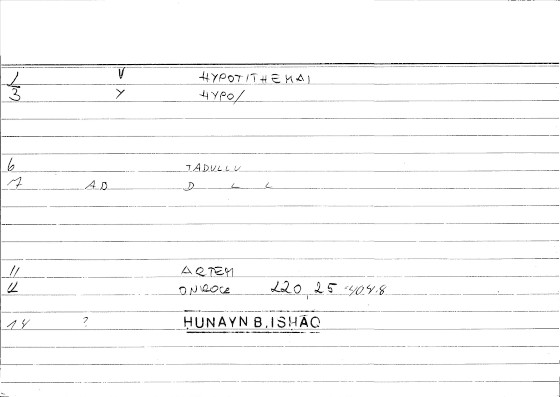 1 V HYPOTITHEMAI
3 Y HYPO/
6 TADULLU
7 AD D L L
11 ARTEM
12 ONIROCR 220, 25 40.4.8
14 ? HUNAYN B. ISHĀQ